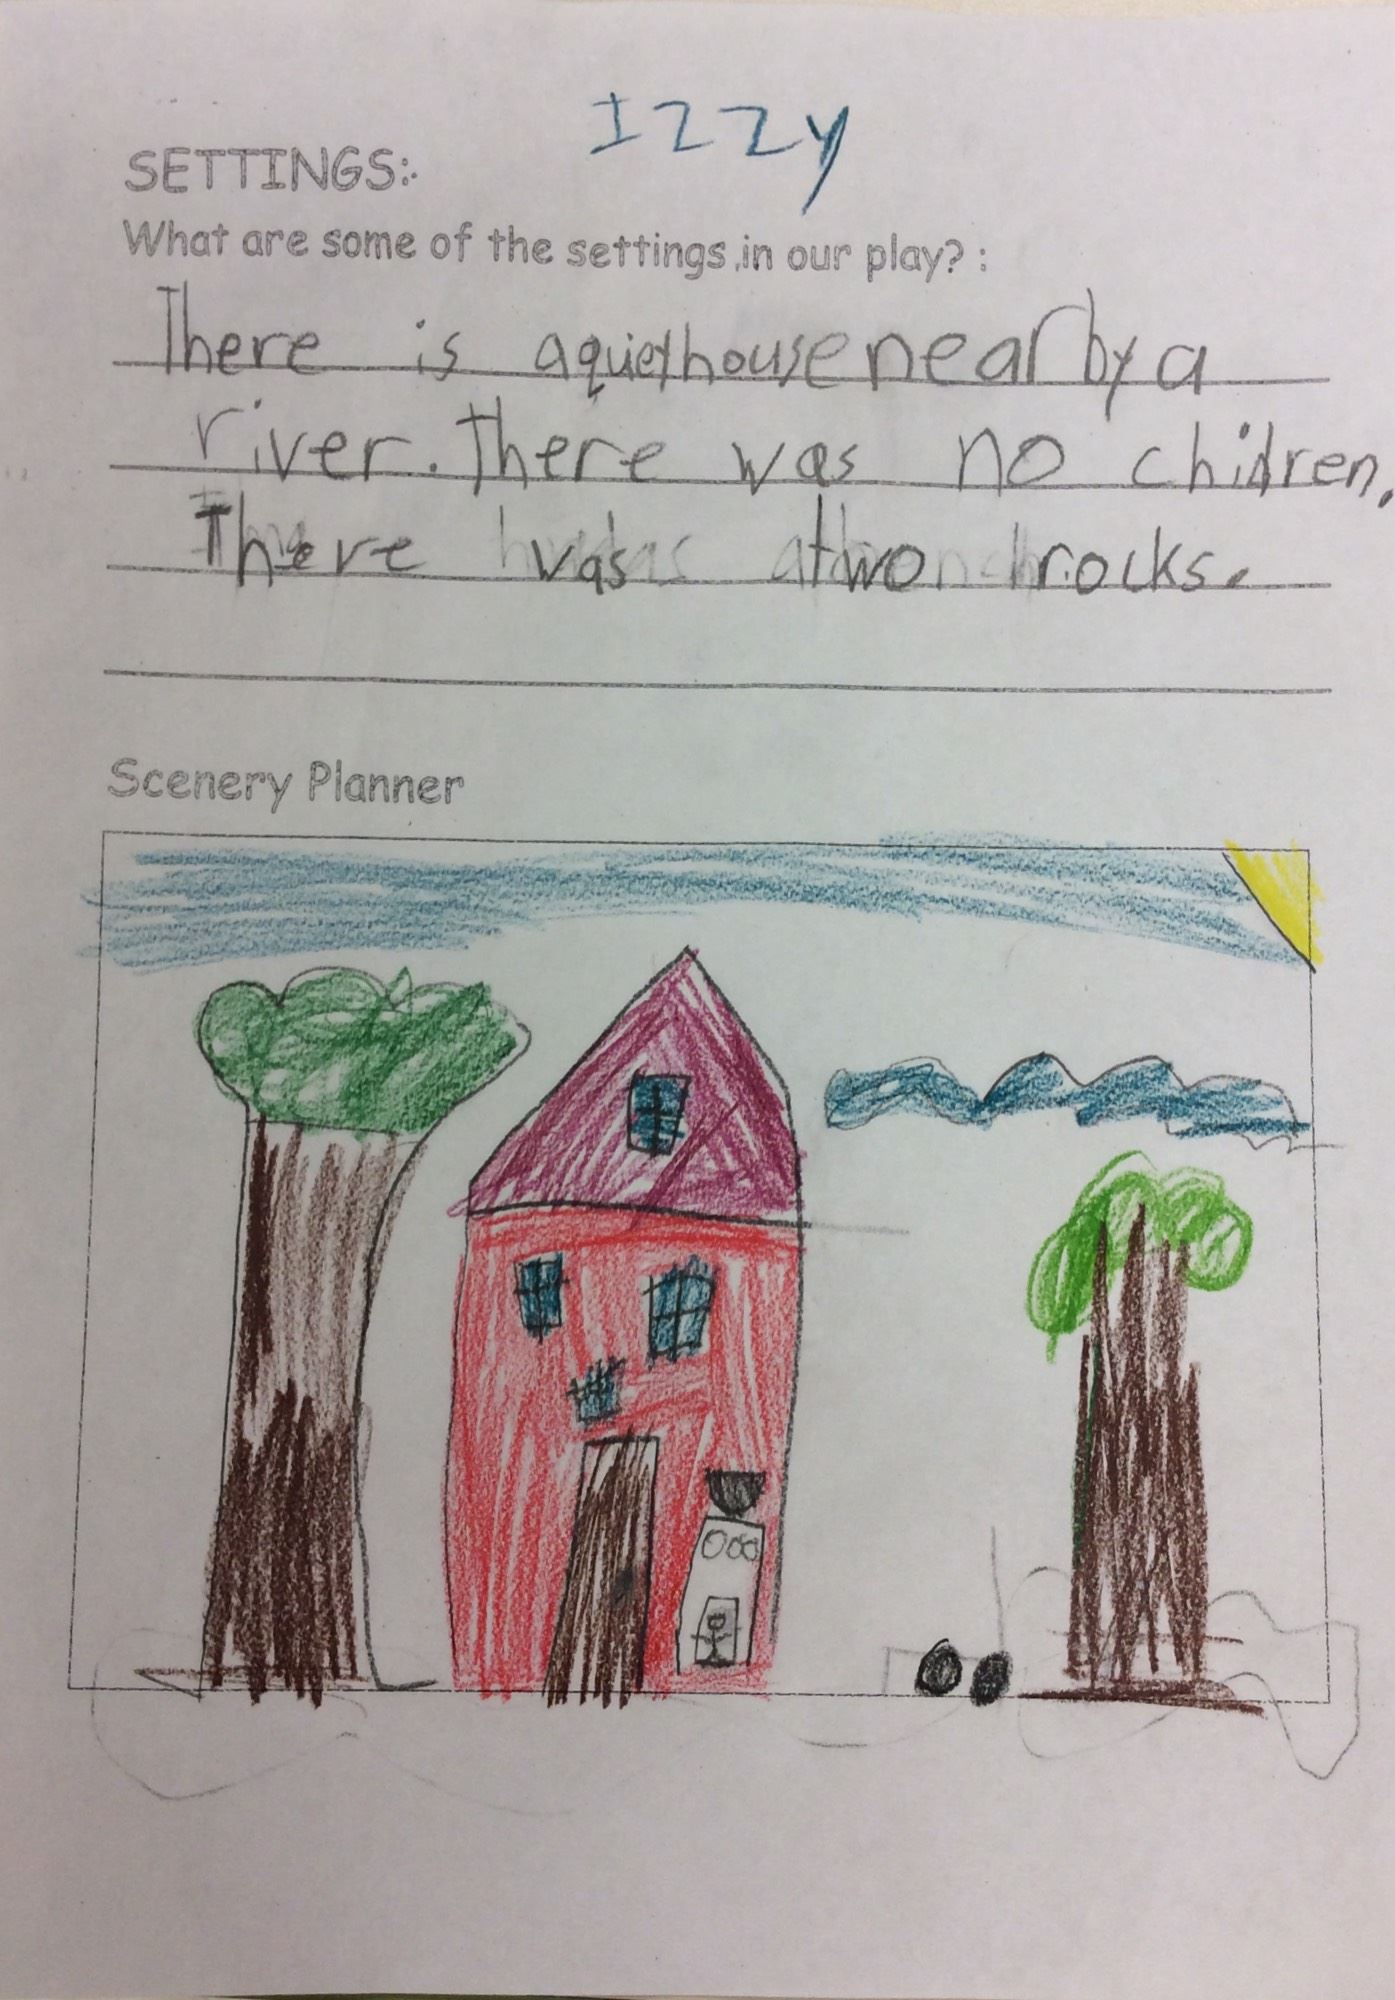 Izzy
SETTINGS:
What are some of the settings in our play? :
There is a quiet house near by a
river. There was no chidren.
There was two rocks.
Scenery Planner